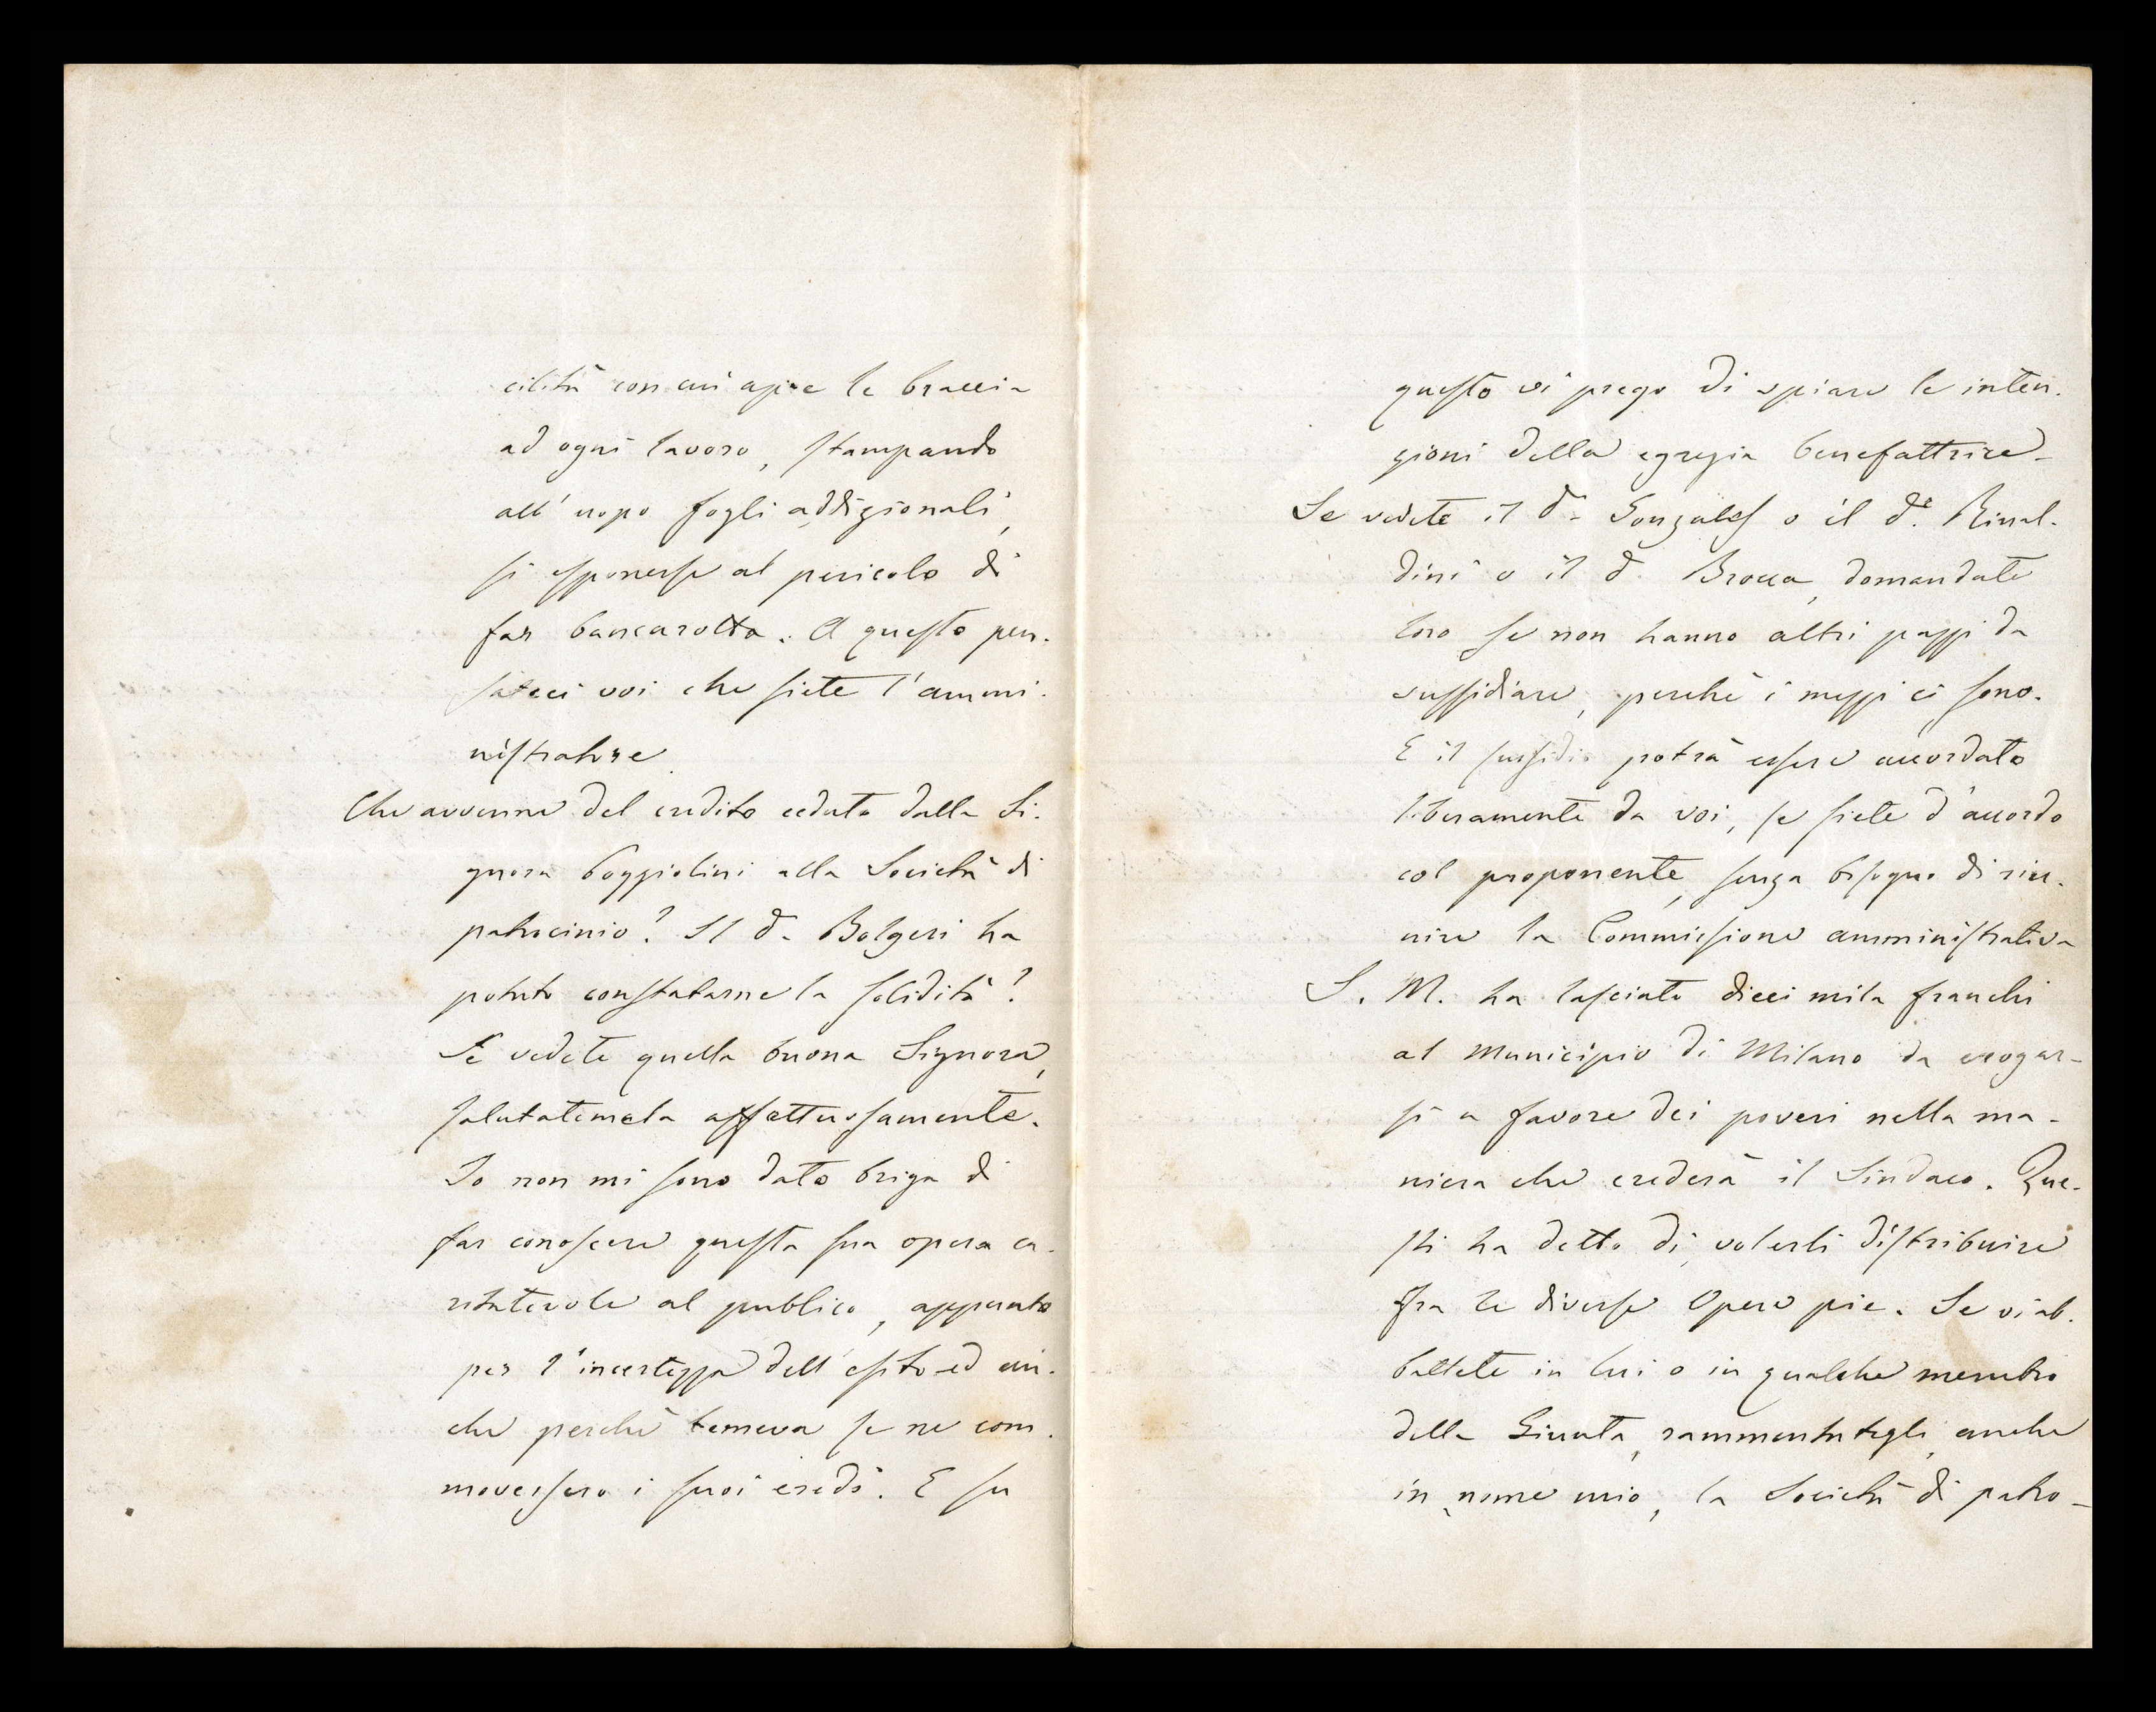 cilità con cui apre le braccia
ad ogni lavoro, stampando
all'uopo fogli addizionali,
si esponesse al pericolo di
far bancarotta. A questo pen-
sateci voi che siete l'ammi-
nistratore.
Che avvenne del credito ceduto dalla Si-
gnora Poggiolini alla Società di
patrocinio? Il d. Bolgeri ha
potuto constatarne la solidità?
Se vedete quella buona Signora,
salutatemela affettuosamente.
Io non mi sono dato briga di
far conoscere questa sua opera ca-
ritatevole al publico, appunto
per l'incertezza dell'esito ed an-
che perché temeva se ne com-
movessero i suoi eredi. E su
questo vi prego di spiare le inten-
zioni della egregia benefattrice -
Se vedete il d. Gonzales o il d.r Rinal-
dini o il d. Brocca, domandate
loro se non hanno altri pazzi da
sussidiare, perché i mezzi ci sono.
E il sussidio potrà essere accordato
liberamente da voi, se siete d'accordo
col proponente, senza bisogno di riu-
nire la Commissione amministrativa
S. M. ha lasciato dieci mila franchi
al Municipio di Milano da erogar-
si a favore dei poveri nella ma-
niera che crederà il Sindaco. Que-
sti ha detto di volerli distribuire
fra le diverse Opere pie. Se vi ab-
battete in lui o in qualche membro
della Giunta, rammentategli, anche
in nome mio, la Società di patro-